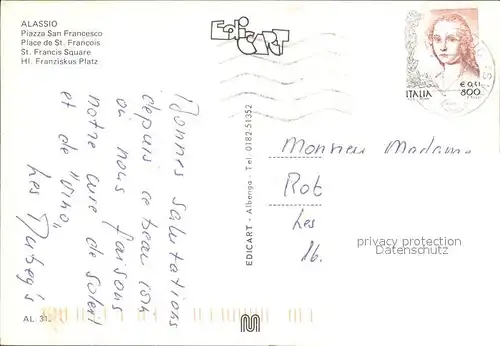 ALASSIO
Piazza San Francesco
Place de St. François
St. Francis Square
Hl. Franziskus Platz
EdiCART
ITALIA
€ 0,41
800
Bonnes salutations
depuis ce beau coin
où nous faisons
notre cure de soleil
et de "Vino"
Les
EDICART - Albenga - Tel. 0182-51352
Monsieur Madame
Rot
Les
privacy protection
Datenschutz
AL. 31